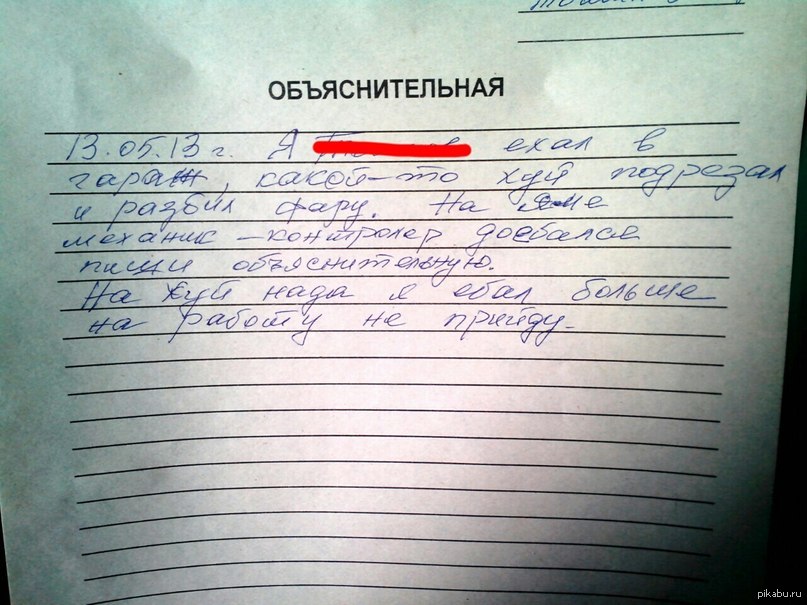 ОБЪЯСНИТЕЛЬНАЯ
13.05.13 г. Я ехал в
гараж, какой-то хуй подрезал
и разбил фару. На яме
механик-контролер доебался
пиши объяснительную.
На хуй нада я ебал больше
на работу не прийду.
pikabu.ru